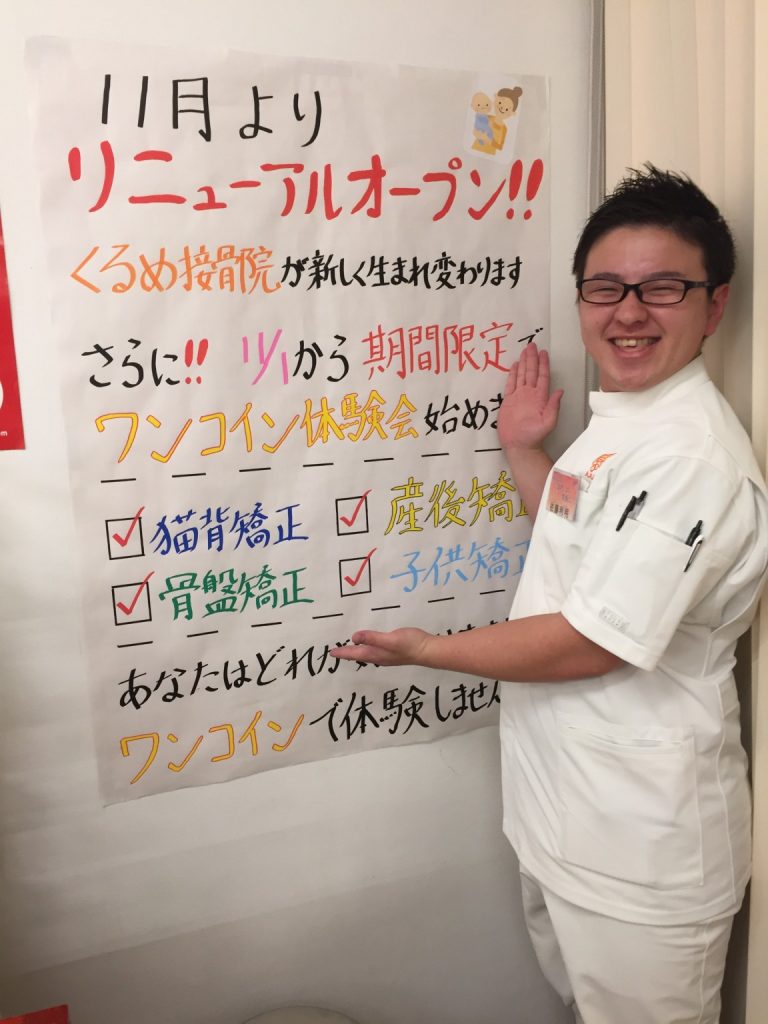 11月より
リニューアルオープン!!
くるめ接骨院が新しく生まれ変わります
さらに!! 11/1から期間限定で
ワンコイン体験会始めま
猫背矯正 産後矯正
骨盤矯正 子供矯正
あなたはどれが
ワンコインで体験しません